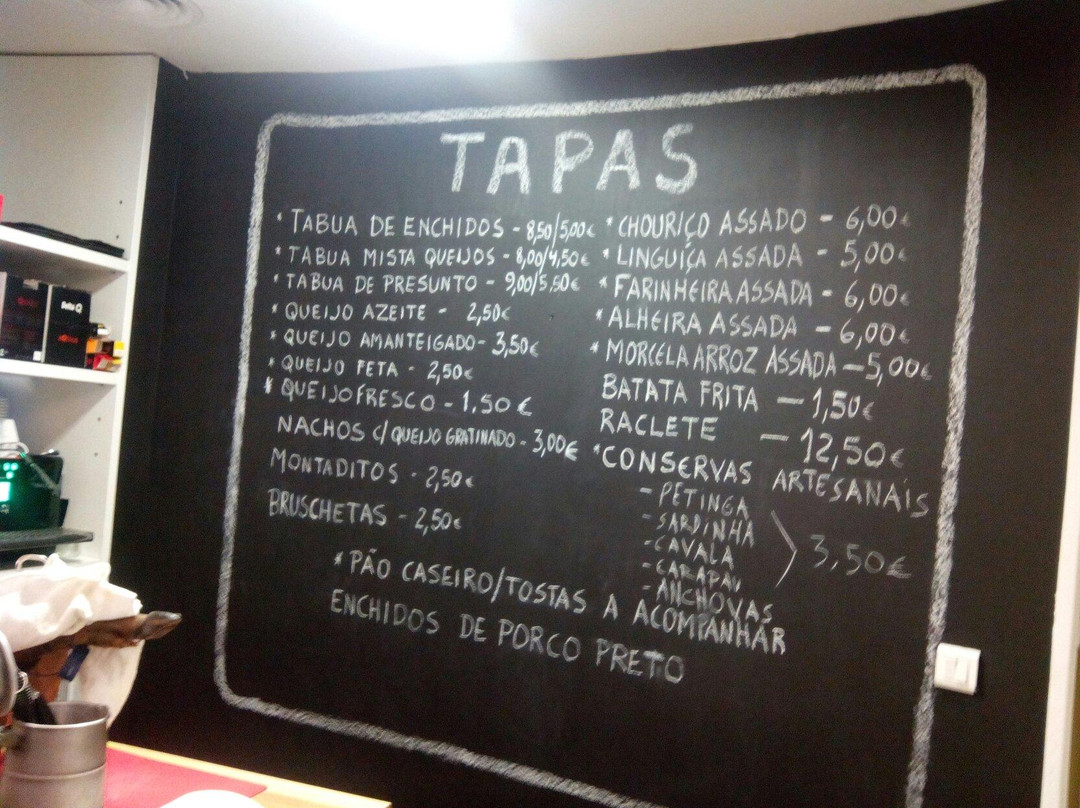 TAPAS
* TABUA DE ENCHIDOS - 8,50/5,00€
* TABUA MISTA QUEIJOS - 8,00/4,50€
* TABUA DE PRESUNTO - 9,00/5,50€
* QUEIJO AZEITE - 2,50€
* QUEIJO AMANTEIGADO - 3,50€
* QUEIJO FETA - 2,50€
* QUEIJO FRESCO - 1,50€
NACHOS C/ QUEIJO GRATINADO - 3,00€
MONTADITOS - 2,50€
BRUSCHETAS - 2,50€
* CHOURIÇO ASSADO - 6,00€
* LINGUIÇA ASSADA - 5,00€
* FARINHEIRA ASSADA - 6,00€
* ALHEIRA ASSADA - 6,00€
* MORCELA ARROZ ASSADA - 5,00€
BATATA FRITA - 1,50€
RACLETE - 12,50€
* CONSERVAS ARTESANAIS
- PETINGA
- SARDINHA
- CAVALA
- CARAPAU
- ANCHOVAS
3,50€
* PÃO CASEIRO/TOSTAS A ACOMPANHAR
ENCHIDOS DE PORCO PRETO
Delta Q